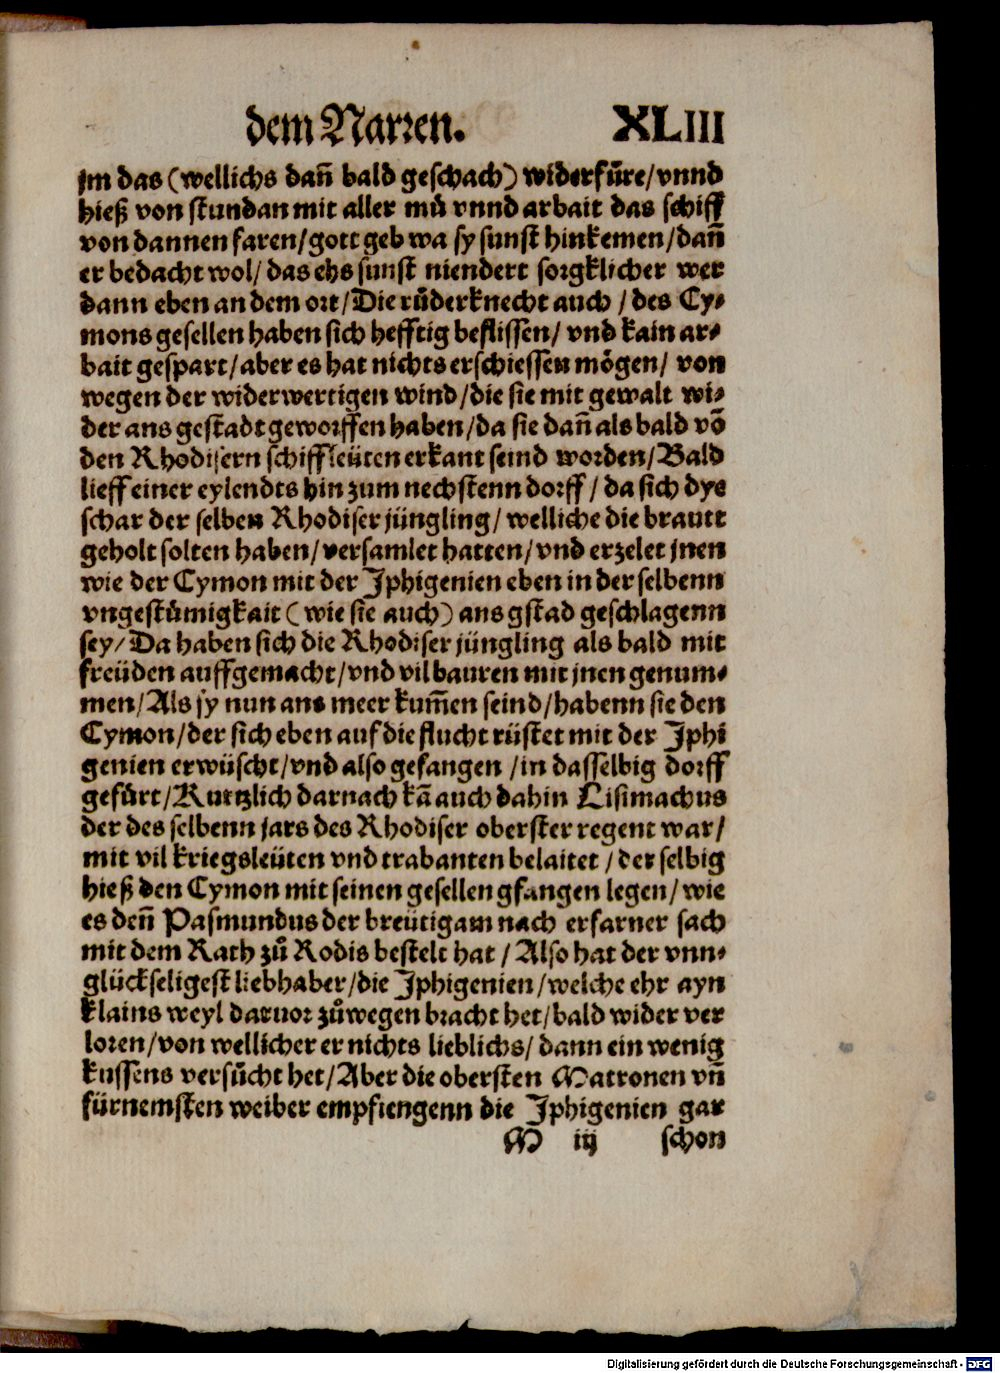 dem Narren. XLIII
jm das (wellichs dañ bald geschach) widerfůre/vnnd
hieß von stundan mit aller mů vnnd arbait das schiff
von dannen faren/gott geb wa sy sunst hinkemen/dañ
er bedacht wol/das ehs sunst niendert sorgklicher wer
dann eben an dem ort/Die růderknecht auch/des Cy-
mons gesellen haben sich hefftig beflissen/vnd kain ar-
bait gespart/aber es hat nichts erschiessen mögen/von
wegen der widerwertigen wind/die sie mit gewalt wi-
der ans gestadt geworffen haben/da sie dañ als bald võ
den Rhodisern schiffleüten erkant seind worden/Bald
lieff einer eylendts hin zum nechstenn dorff/da sich dye
schar der selben Rhodiser jüngling/welliche die brautt
geholt solten haben/versamlet hatten/vnd erzelet jnen
wie der Cymon mit der Iphigenien eben in der selbenn
vngestůmigkait (wie sie auch) ans gstad geschlagenn
sey/Da haben sich die Rhodiser jüngling als bald mit
freüden auffgemacht/vnd vil bauren mit jnen genum-
men/Als sy nun ans meer kum̃en seind/habenn sie den
Cymon/der sich eben auf die flucht rüstet mit der Iphi
genien erwüscht/vnd also gefangen/in dasselbig dorff
gefůrt/Kurtzlich darnach kã auch dahin Lisimachus
der des selbenn jars des Rhodiser oberster regent war/
mit vil kriegsleüten vnd trabanten belaitet/der selbig
hieß den Cymon mit seinen gesellen gfangen legen/wie
es deñ Pasmundus der breütigam nach erfarner sach
mit dem Rath zů Rodis bestelt hat/Also hat der vnn-
glückseligest liebhaber/die Iphigenien/welche ehr ayn
klains weyl daruor zůwegen bracht het/bald wider ver
loren/von wellicher er nichts lieblichs/dann ein wenig
kussens versůcht het/Aber die obersten Matronen vñ
fürnemsten weiber empfiengenn die Iphigenien gar
M iij schon
Digitalisierung gefördert durch die Deutsche Forschungsgemeinschaft - DFG